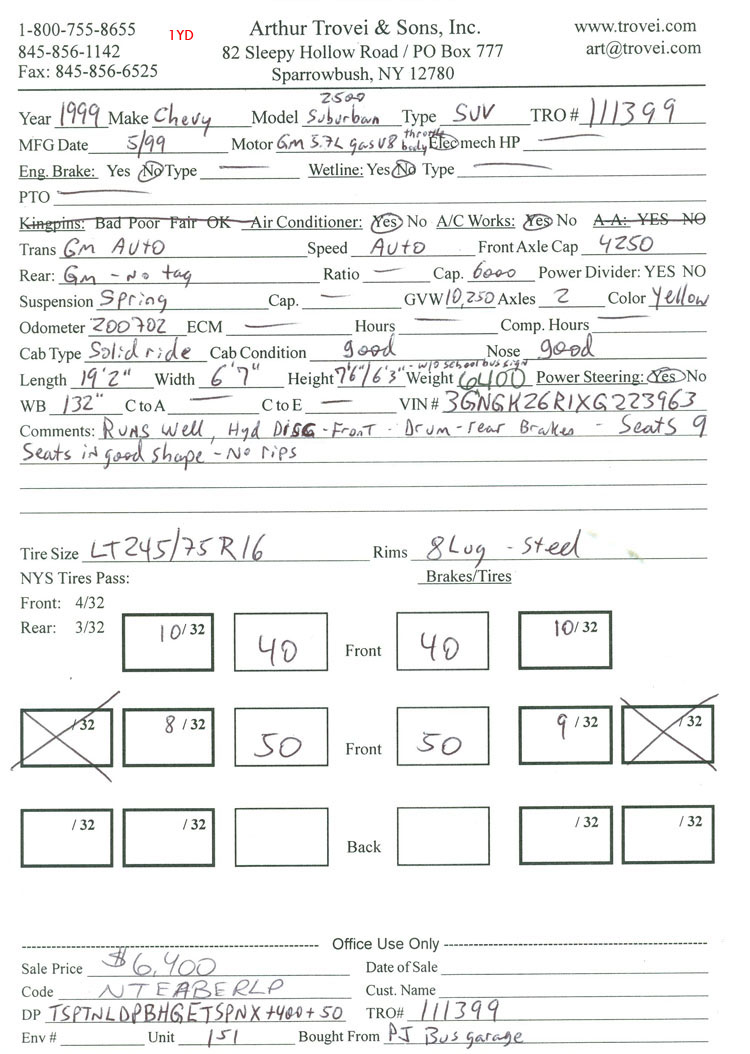 1-800-755-8655 1YD Arthur Trovei & Sons, Inc. www.trovei.com
845-856-1142 82 Sleepy Hollow Road / PO Box 777 art@trovei.com
Fax: 845-856-6525 Sparrowbush, NY 12780
2500
Year 1999 Make Chevy Model Suburban Type SUV TRO # 111399
MFG Date 5/99 Motor GM 5.7L gas V8 throttle body Elec mech HP
Eng. Brake: Yes No Type Wetline: Yes No Type
PTO
Kingpins: Bad Poor Fair OK Air Conditioner: Yes No A/C Works: Yes No A-A: YES NO
Trans GM Auto Speed Auto Front Axle Cap 4250
Rear: Gm - No tag Ratio Cap. 6000 Power Divider: YES NO
Suspension Spring Cap. GVW 10,250 Axles 2 Color Yellow
Odometer 200702 ECM Hours Comp. Hours
Cab Type Solid ride Cab Condition good Nose good
Length 19'2" Width 6'7" Height 7'6"/6'3" - w/o school bus sign Weight 6400 Power Steering: Yes No
WB 132" C to A C to E VIN # 3GNGK26R1XG223963
Comments: Runs Well, Hyd Disc - Front - Drum - rear Brakes - Seats 9
Seats in good shape - No rips
Tire Size LT245/75R16 Rims 8 Lug - Steel
NYS Tires Pass: Brakes/Tires
Front: 4/32
Rear: 3/32
10/32 40 Front 40 10/32
/32 8/32 50 Front 50 9/32 /32
/32 /32 Back /32 /32
Office Use Only
Sale Price $6,400 Date of Sale
Code NTEABERLP Cust. Name
DP TSPTNLDPBHGETSPNX +400+50 TRO# 111399
Env # Unit 151 Bought From PJ Bus garage